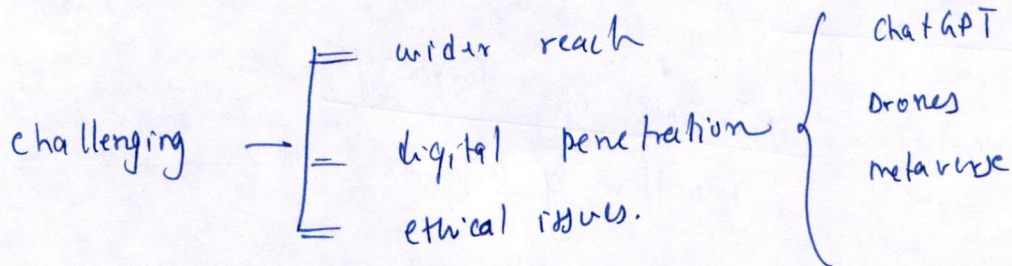 challenging
wider reach
digital penetration
ethical issues.
ChatGPT
Drones
metaverse